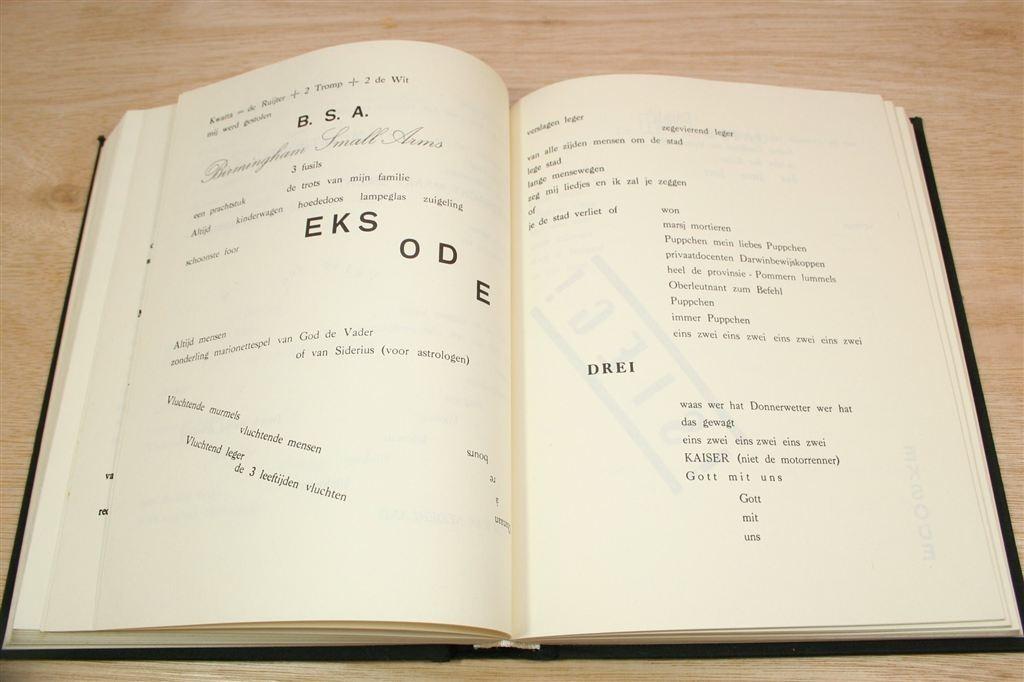 Kwatta = de Ruijter + 2 Tromp + 2 de Wit
mij werd gestolen
B. S. A.
Birmingham Small Arms
3 fusils
de trots van mijn familie
een prachtstuk
Altijd kinderwagen hoededoos lampeglas zuigeling
EKS
OD
E
schoonste foor
Altijd mensen
zonderling marionettespel van God de Vader
of van Siderius (voor astrologen)
Vluchtende murmels
vluchtende mensen
Vluchtend leger
de 3 leeftijden vluchten
bours
re
à
verslagen leger
zegevierend leger
van alle zijden mensen om de stad
lege stad
lange mensewegen
zeg mij liedjes en ik zal je zeggen
of
je de stad verliet of
won
marsj mortieren
Puppchen mein liebes Puppchen
privaatdocenten Darwinbewijskoppen
heel de provinsie - Pommern lummels
Oberleutnant zum Befehl
Puppchen
immer Puppchen
eins zwei eins zwei eins zwei eins zwei
DREI
waas wer hat Donnerwetter wer hat
das gewagt
eins zwei eins zwei eins zwei
KAISER (niet de motorrenner)
Gott mit uns
Gott
mit
uns